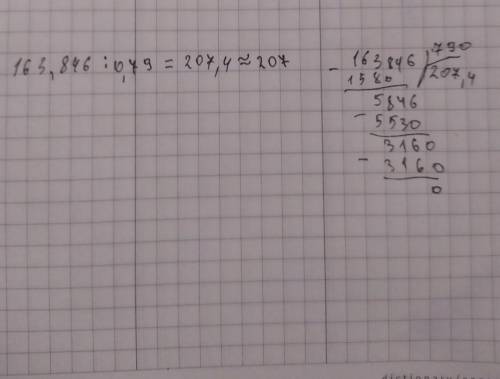 163,846 : 0,79 = 207,4 ≈ 207
- 163846 | 790
1580 | 207,4
5846
- 5530
3160
- 3160
0